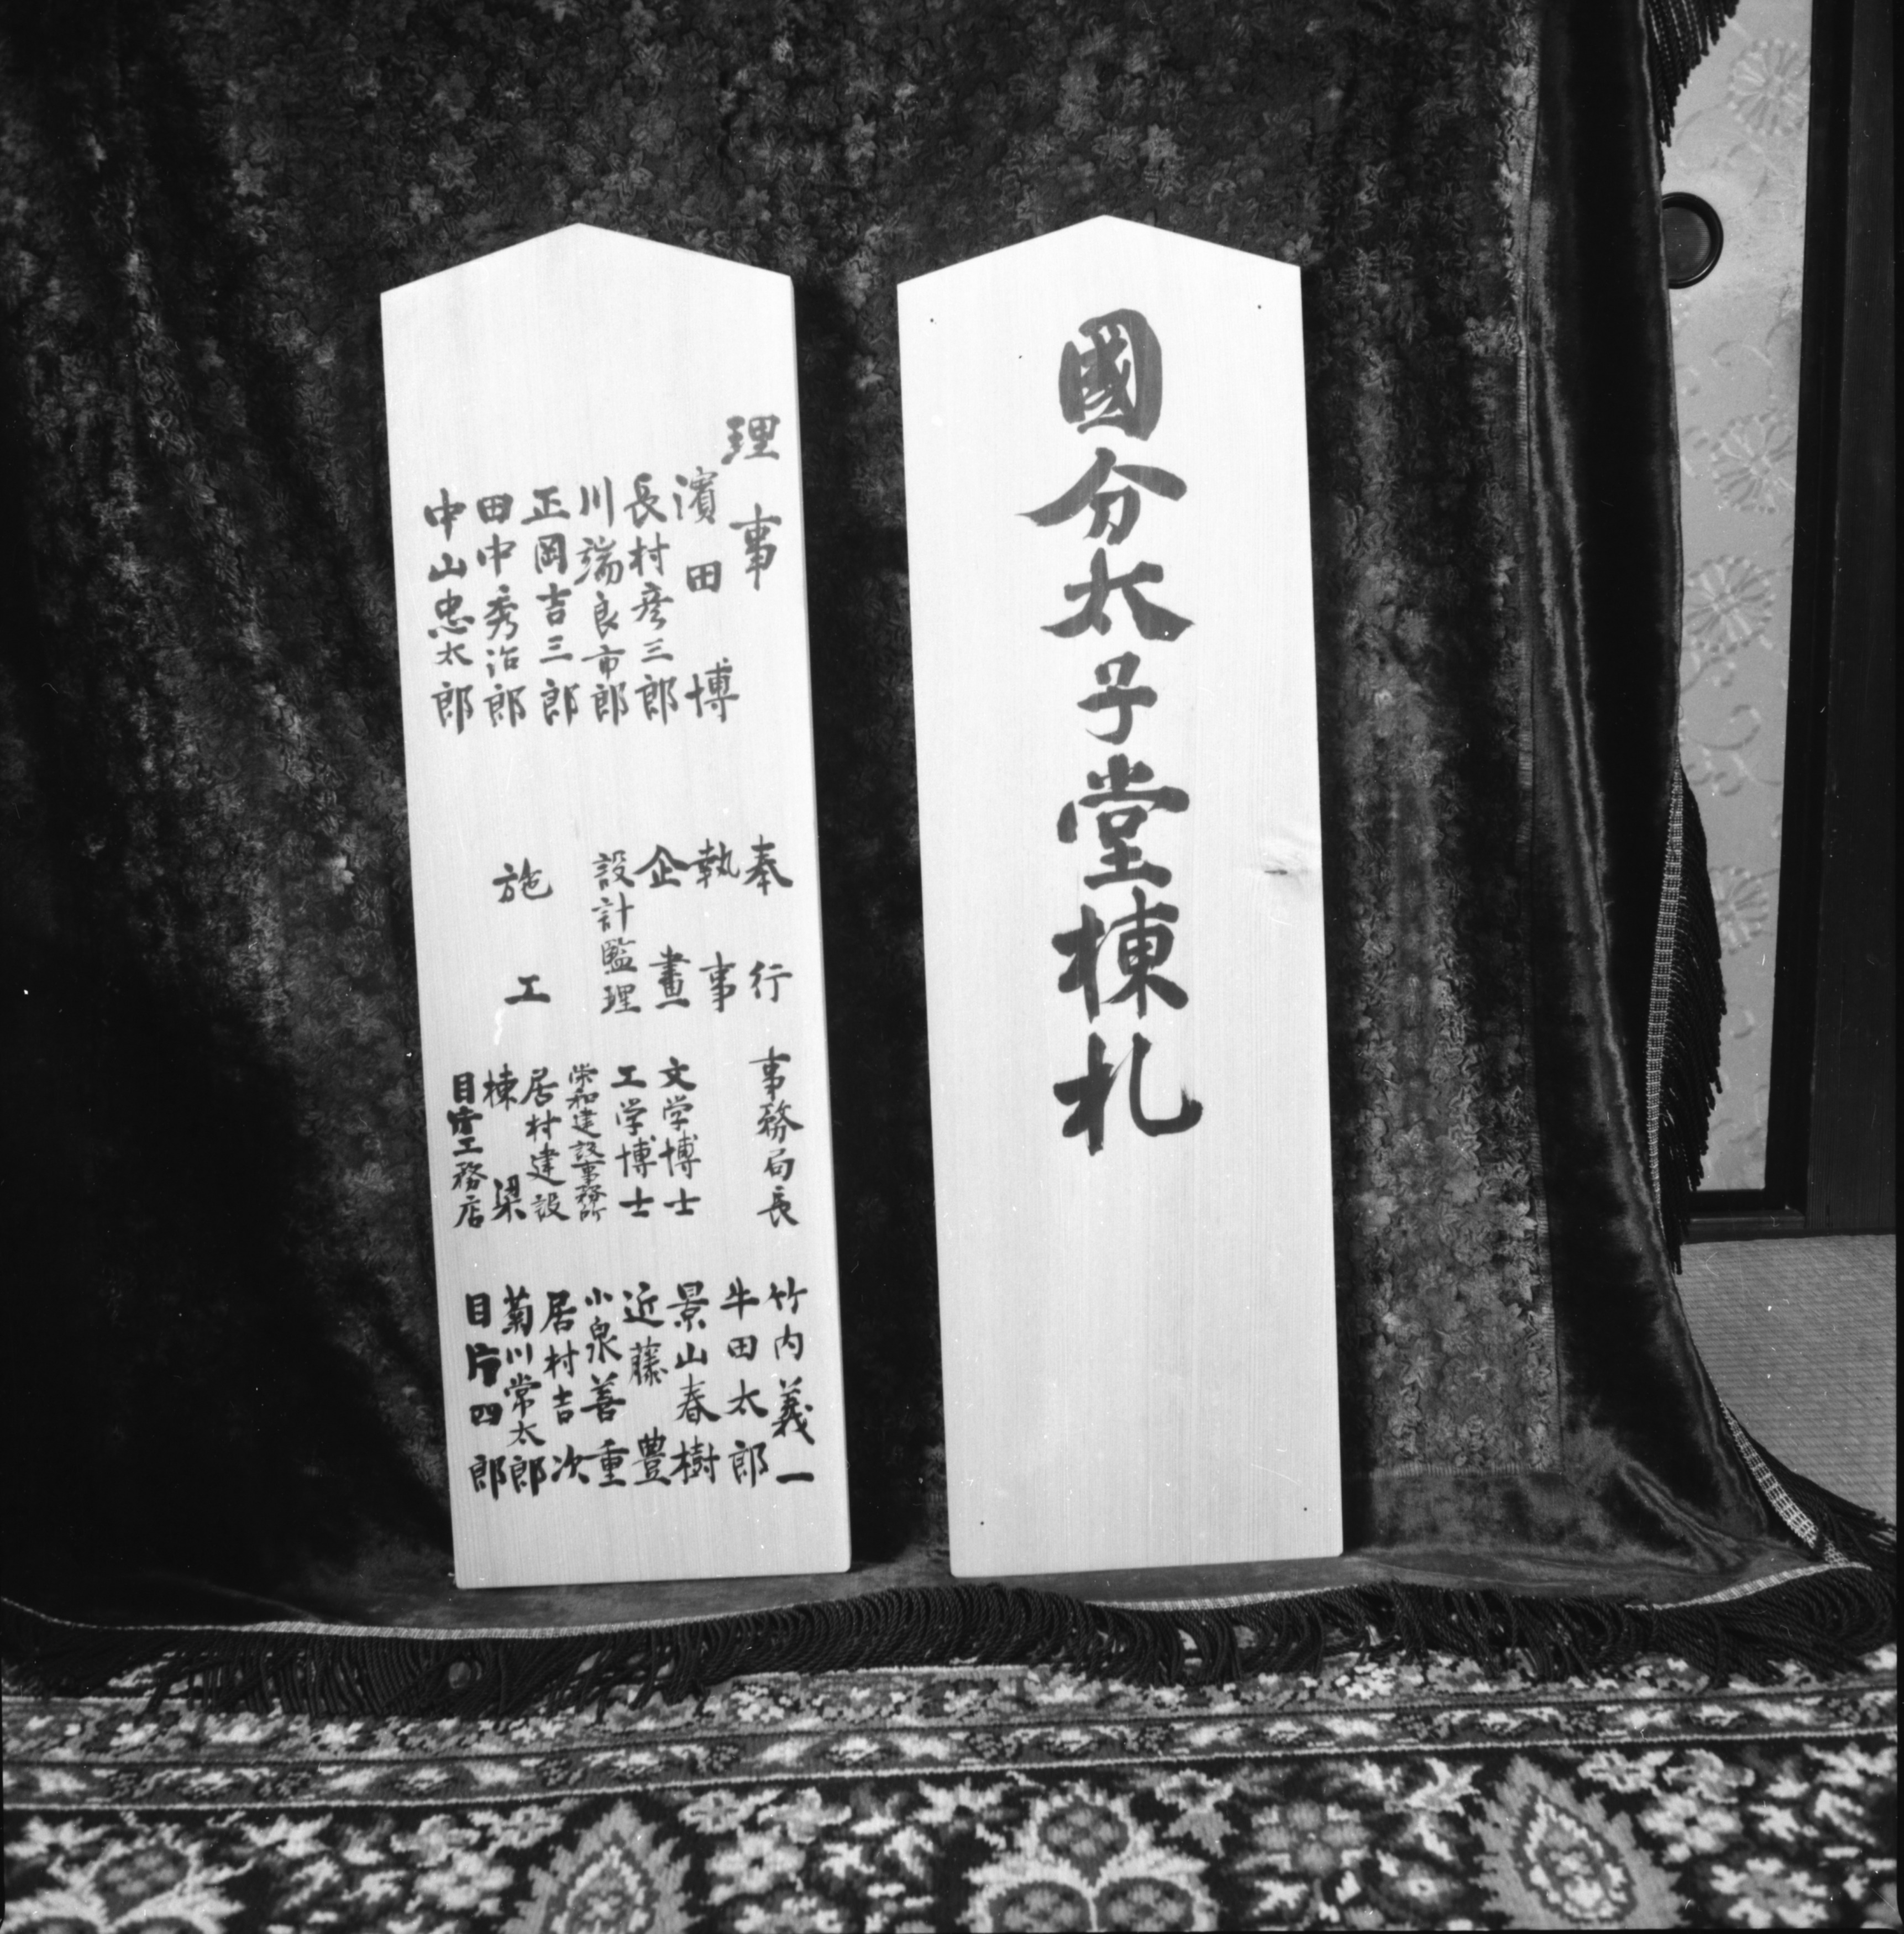 國分太子堂棟札
理事
濱田博
長村彦三郎
川端良市郎
正岡吉三郎
田中秀治郎
中山忠太郎
奉行 事務局長 竹内義一
執事 牛田太郎
企畫 文学博士 景山春樹
設計監理 工学博士 近藤豊
栄和建設事務所 小泉善重
施工 居村建設 居村吉次
棟梁 菊川常太郎
目片工務店 目片四郎